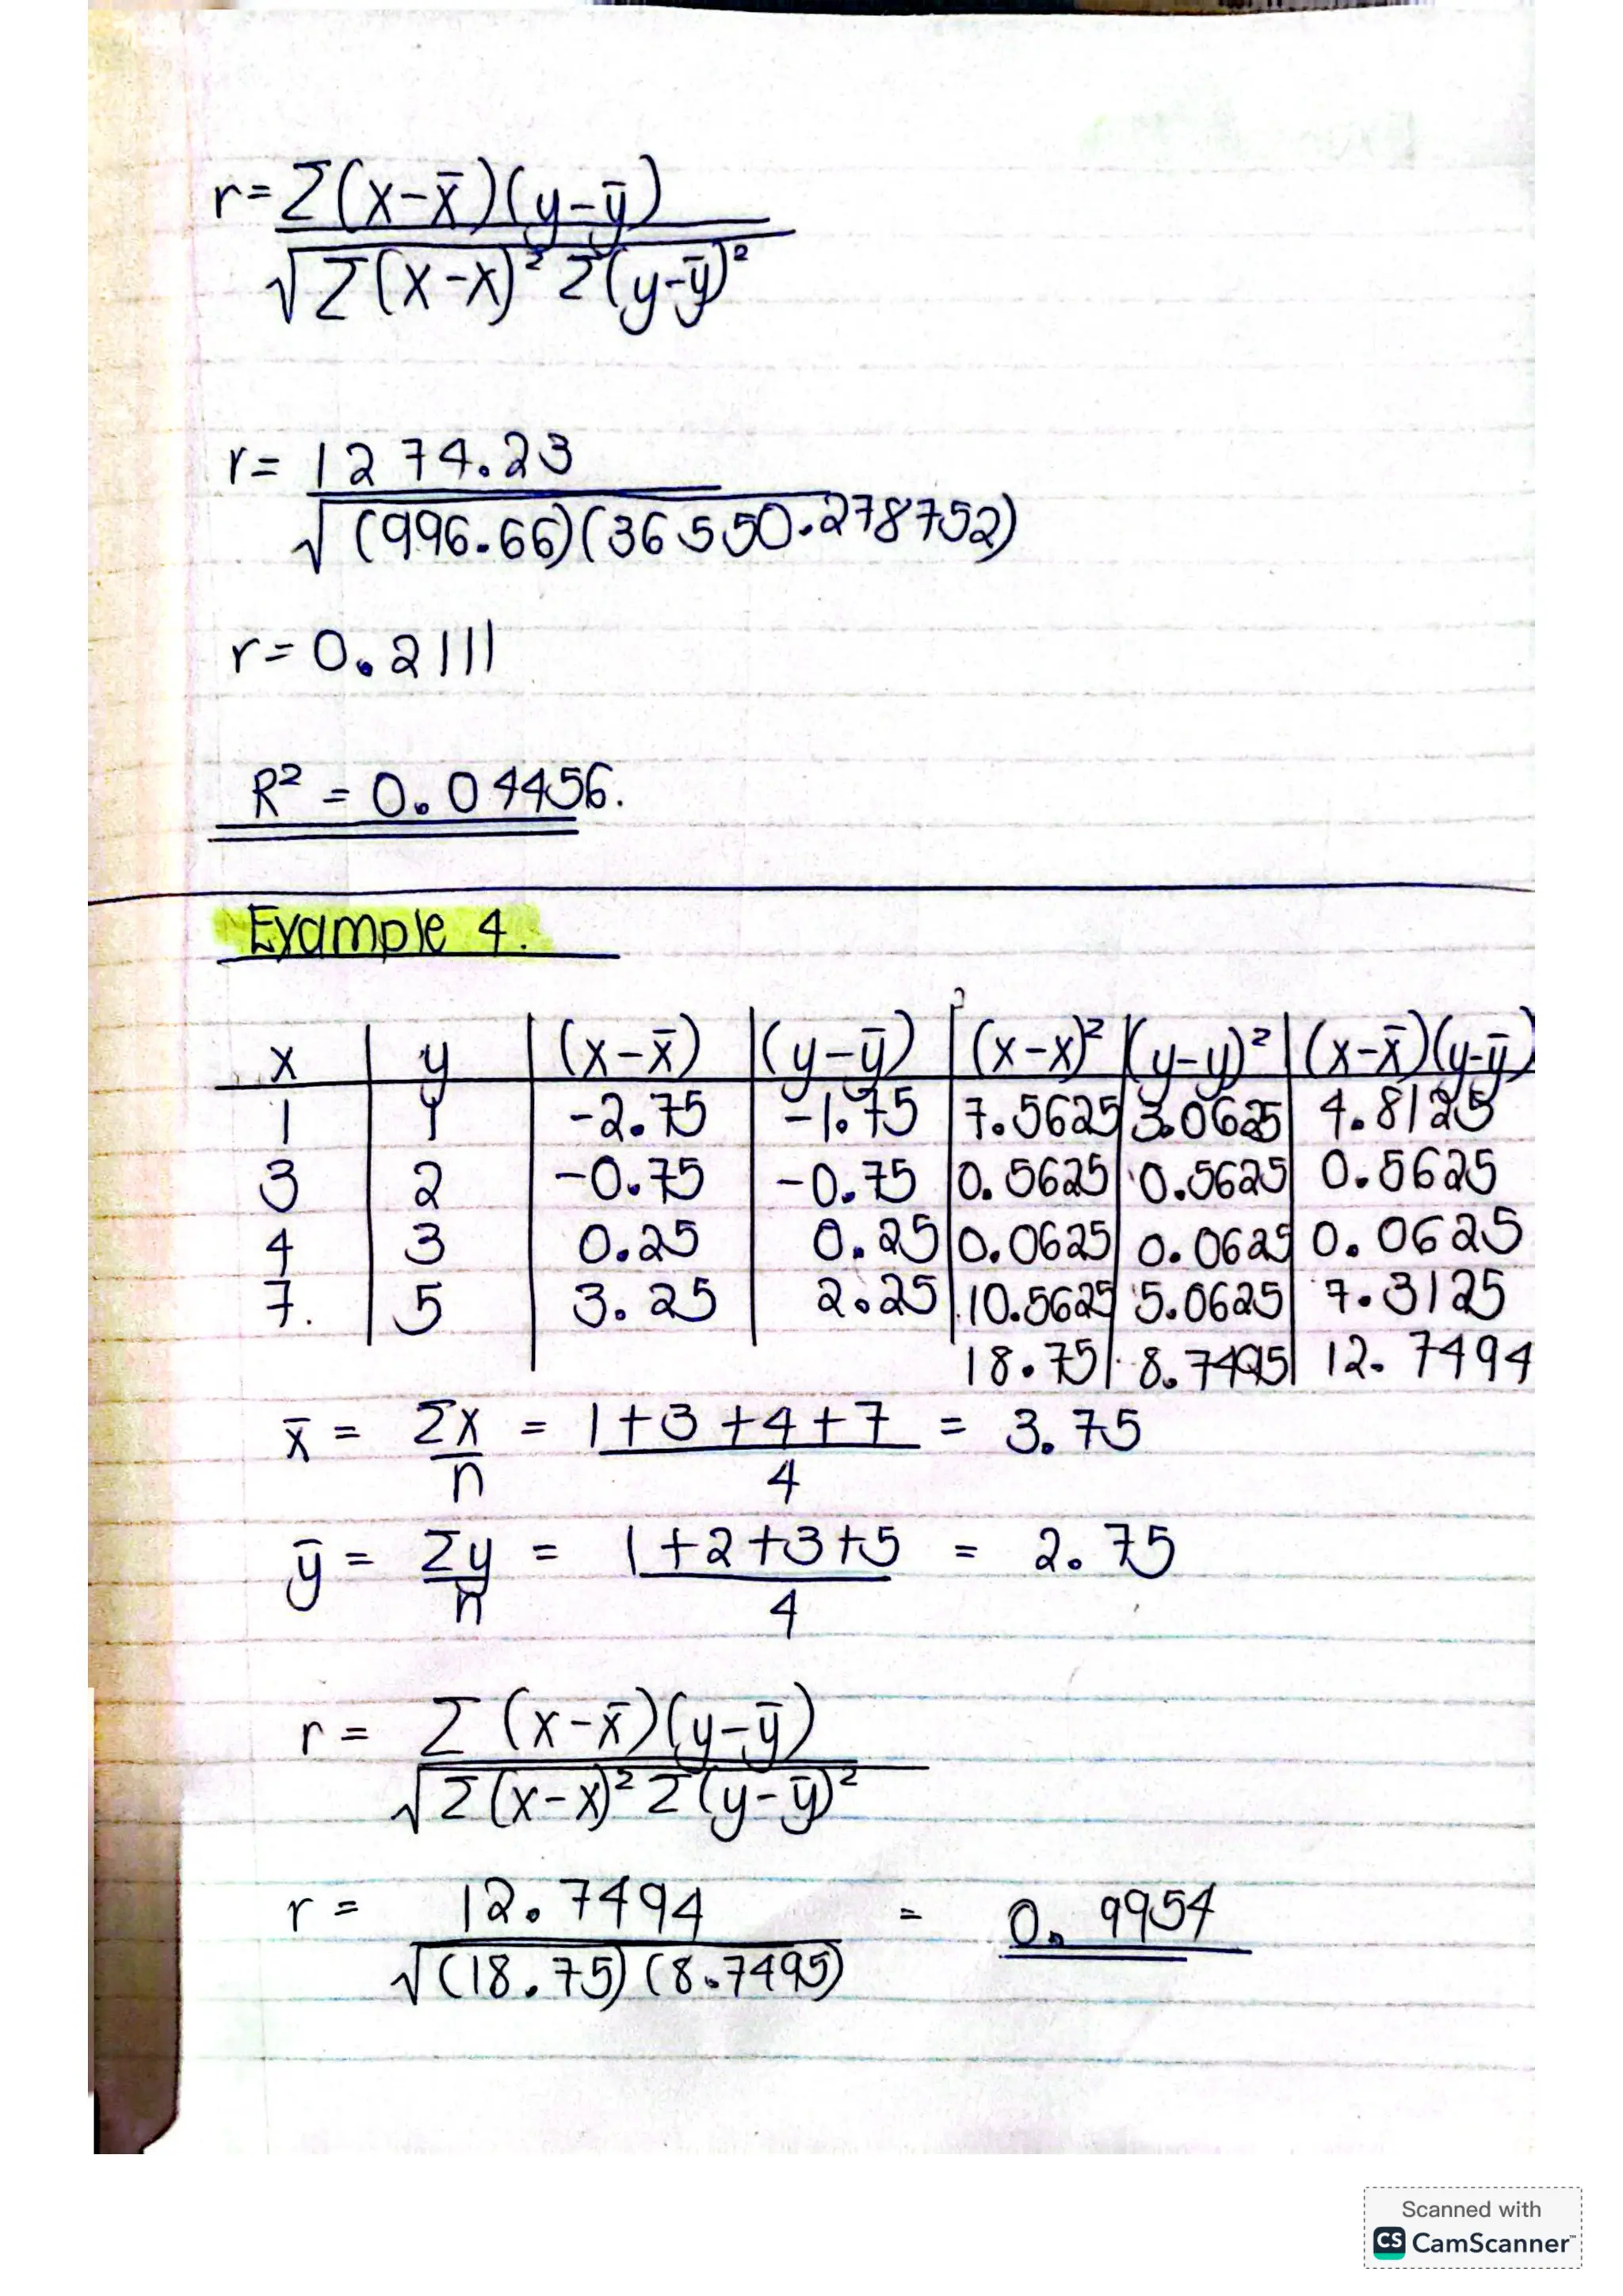 r = Σ(x-x̄)(y-ȳ)
√Σ(x-x)² Σ(y-ȳ)²
r = 1274.23
√(996.66)(36550.278752)
r = 0.2111
R² = 0.04456.
Example 4.
x | y | (x-x̄) | (y-ȳ) | (x-x)² | (y-y)² | (x-x̄)(y-ȳ)
1 | 1 | -2.75 | -1.75 | 7.5625 | 3.0625 | 4.8125
3 | 2 | -0.75 | -0.75 | 0.5625 | 0.5625 | 0.5625
4 | 3 | 0.25 | 0.25 | 0.0625 | 0.0625 | 0.0625
7. | 5 | 3.25 | 2.25 | 10.5625 | 5.0625 | 7.3125
18.75 | 8.7495 | 12.7494
x̄ = Σx = 1+3+4+7 = 3.75
n 4
ȳ = Σy = 1+2+3+5 = 2.75
n 4
r = Σ(x-x̄)(y-ȳ)
√Σ(x-x)² Σ(y-ȳ)²
r = 12.7494 = 0.9954
√(18.75)(8.7495)
Scanned with
CS CamScanner™